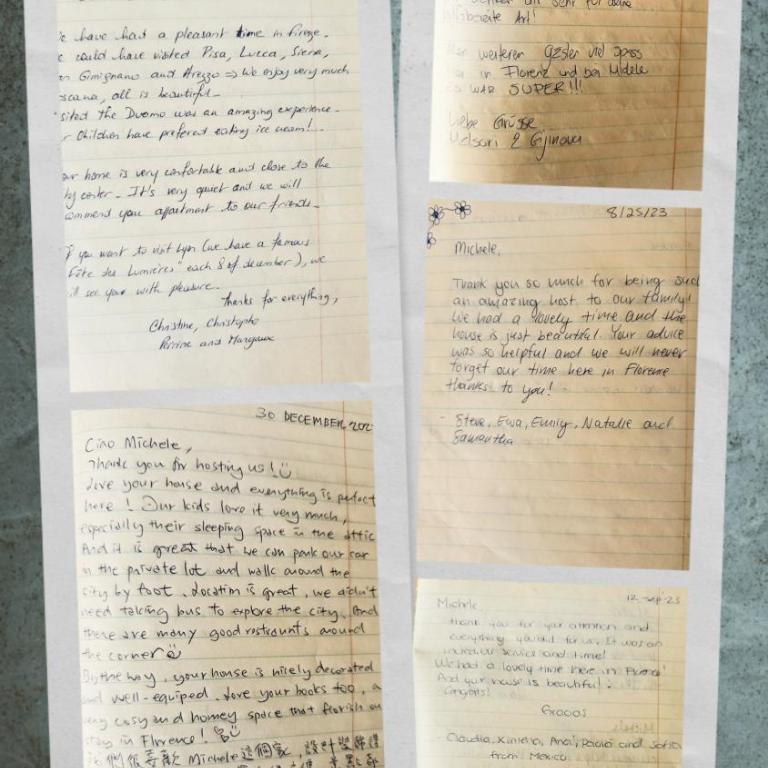 have had a pleasant time in firenze.
could have visited Pisa, Lucca, Siena,
Gimignano and Arezzo => We enjoy very much
scana, all is beautiful.
sited the Duomo was an amazing experience.
r children have preferred eating ice cream!..
ur home is very confortable and close to the
ty center. It's very quiet and we will
ommend your appartment to our friends.
If you want to visit Lyon (we have a famous
"Fête des Lumières" each 8 of december), we
ill see you with pleasure.
Thanks for everything,
Christine, Christophe
Perrine and Margaux
30 DECEMBER 202
Ciao Michele,
Thank you for hosting us!
Love your house and everything is perfect
here! Our kids love it very much,
especially their sleeping space in the attic
And it is great that we can park our car
in the private lot and walk around the
city by foot. Location is great, we didn't
need taking bus to explore the city. And
there are many good restaurants around
the corner
By the way, your house is nicely decorated
and well-equiped. Love your books too, a
very cosy and homey space that
stay in Florence!
們很喜歡 Michele 這個家
hilfsbereite Art!
weiteren Gäster viel Spass
in Florenz und bei
es WAR SUPER!!!
Liebe Grüsse
8/25/23
Michele,
Thank you so much for being such
an amazing host to our family!
We had a lovely time and the
house is just beautiful. Your advice
was so helpful and we will never
forget our time here in Florence
thanks to you!
- Steve, Ewa, Emily, Natalie and
Samantha
12-sep-23
Michele
thank you for your attention and
everything you did for us. It was an
incredible service and time!
We had a lovely time here in
And your house is beautiful!
Congrats!
- Claudia, Ximena, Ana, Paola and Sofia
from Mexico